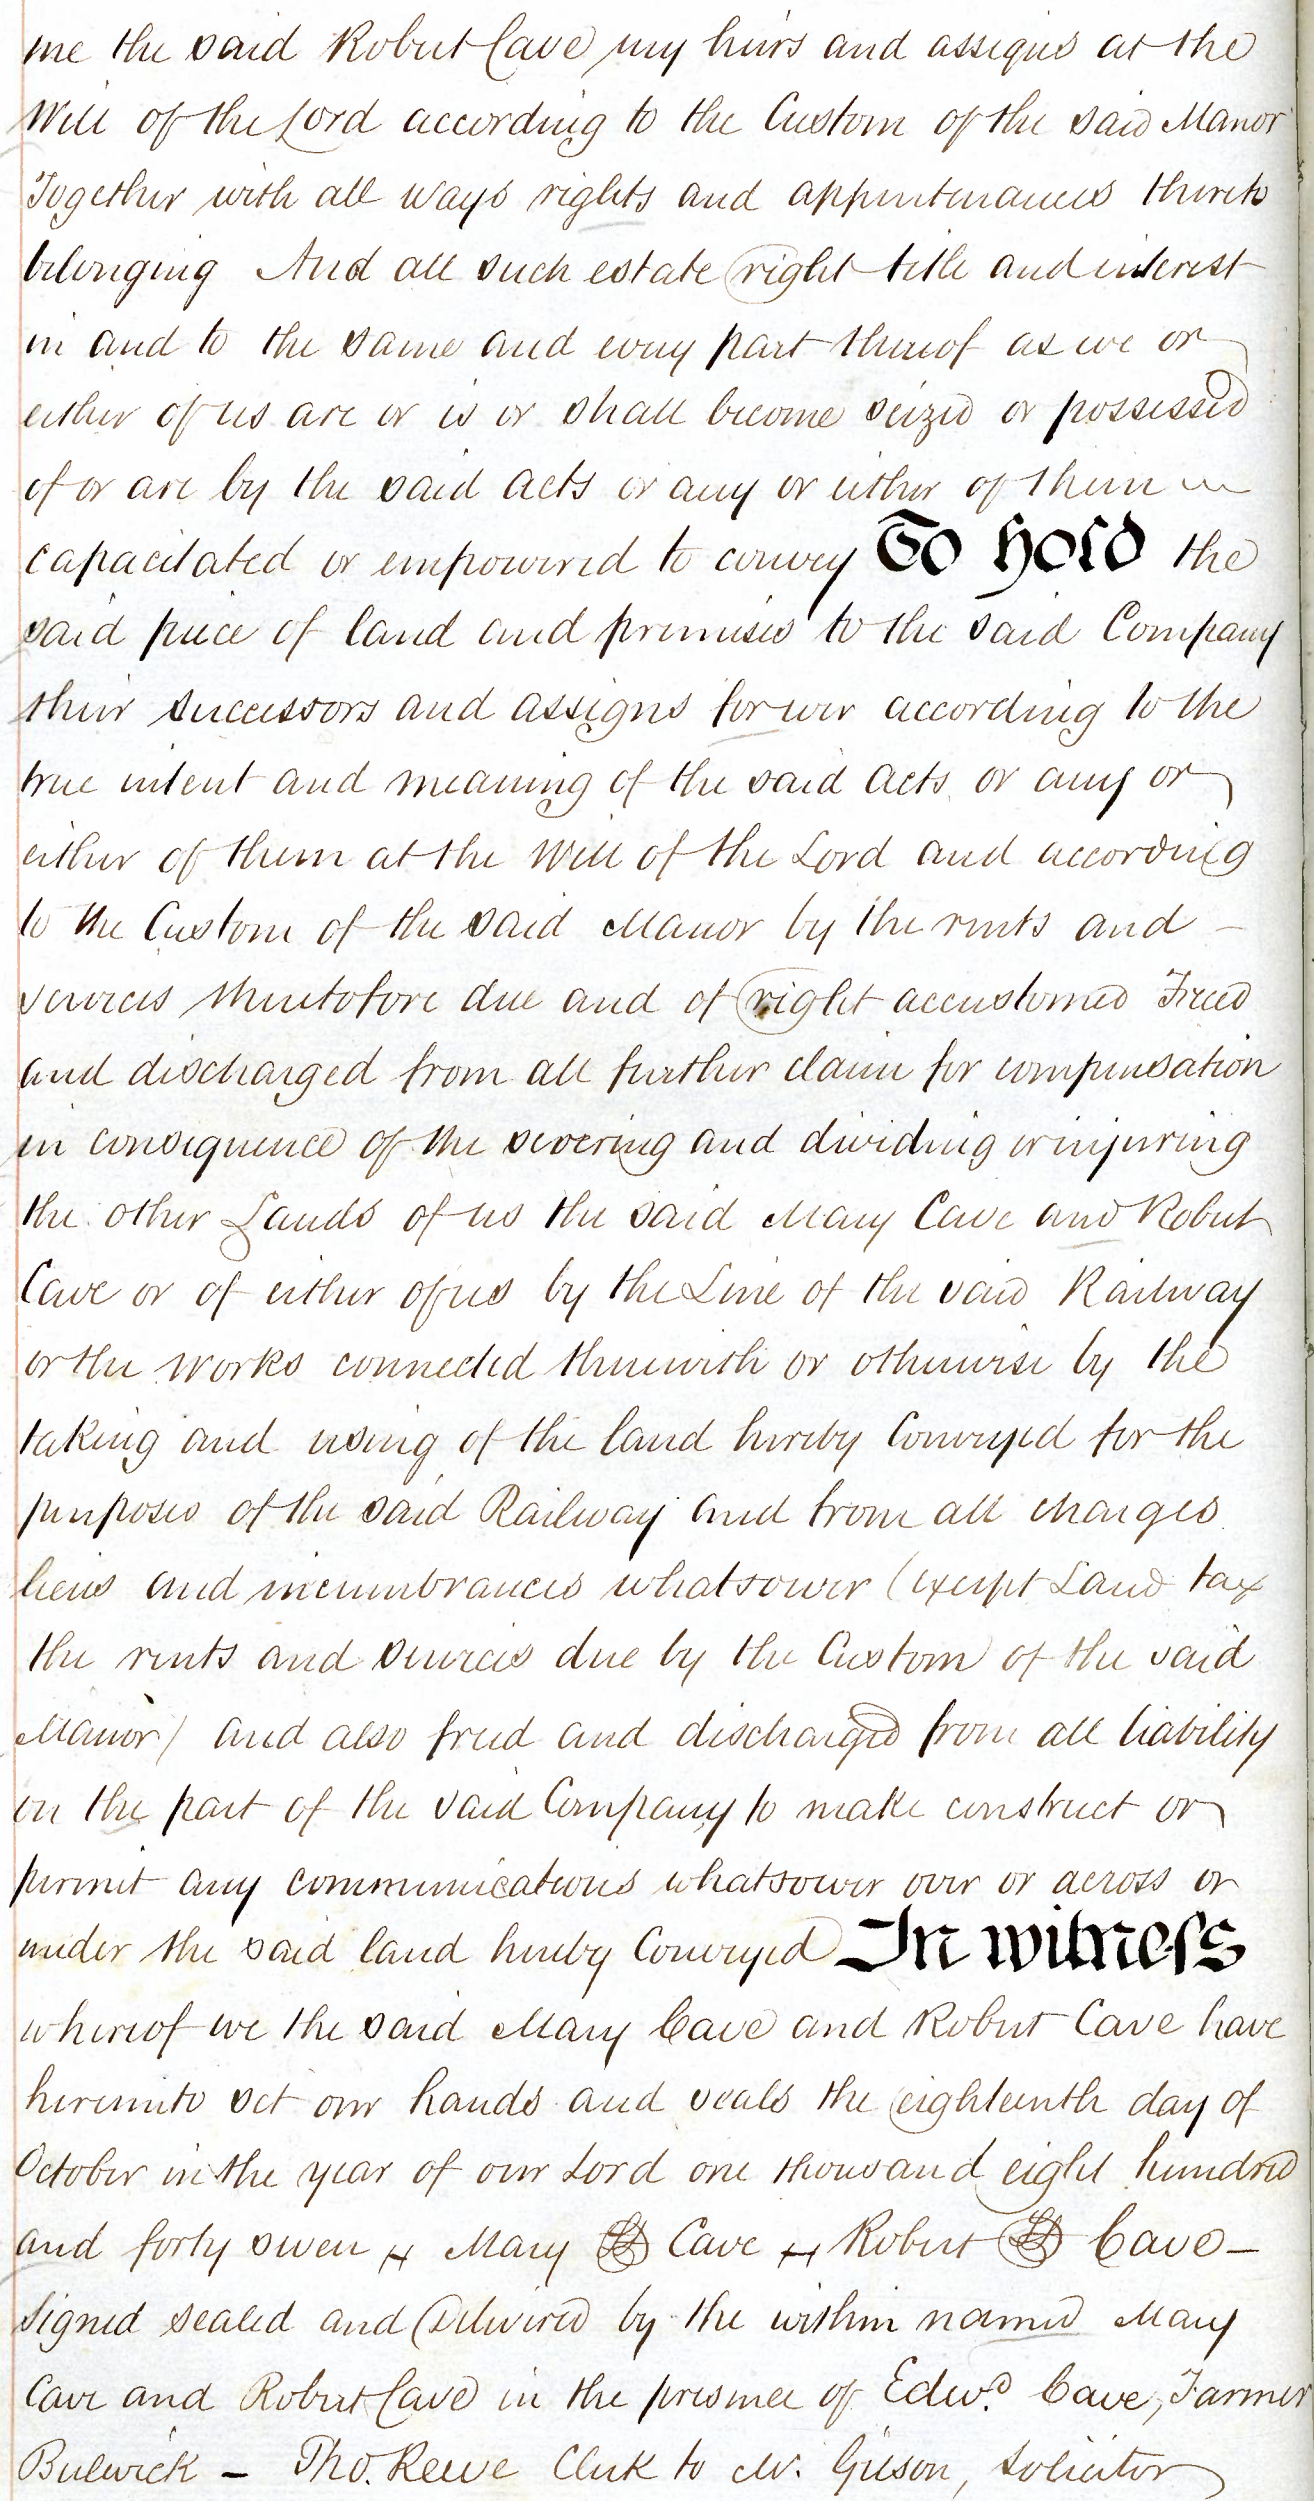 me the said Robert Cave my heirs and assigns at the
Will of the Lord according to the Custom of the said Manor
Together with all ways rights and appurtenances thereto
belonging And all such estate right title and interest
in and to the same and every part thereof as we or
either of us are or is or shall become seized or possessed
of or are by the said acts or any or either of them
capacitated or empowered to convey To Hold the
said piece of land and premises to the said Company
their successors and assigns forever according to the
true intent and meaning of the said acts or any or
either of them at the Will of the Lord and according
to the Custom of the said Manor by the rents and
services theretofore due and of right accustomed Freed
and discharged from all further claim for compensation
in consequence of the severing and dividing or injuring
the other Lands of us the said Mary Cave and Robert
Cave or of either of us by the Line of the said Railway
or the works connected therewith or otherwise by the
taking and using of the land hereby Conveyed for the
purposes of the said Railway and from all charges
liens and incumbrances whatsoever (except Land tax
the rents and services due by the Custom of the said
Manor) and also freed and discharged from all liability
on the part of the said Company to make construct or
permit any communications whatsoever over or across or
under the said land hereby Conveyed In witness
whereof we the said Mary Cave and Robert Cave have
hereunto set our hands and seals the eighteenth day of
October in the year of our Lord one thousand eight hundred
and forty seven Mary LS Cave Robert LS Cave —
Signed sealed and Delivered by the within named Mary
Cave and Robert Cave in the presence of Edwd. Cave, Farmer
Bulwick — Tho. Reeve Clerk to Mr. Gilson, Solicitor